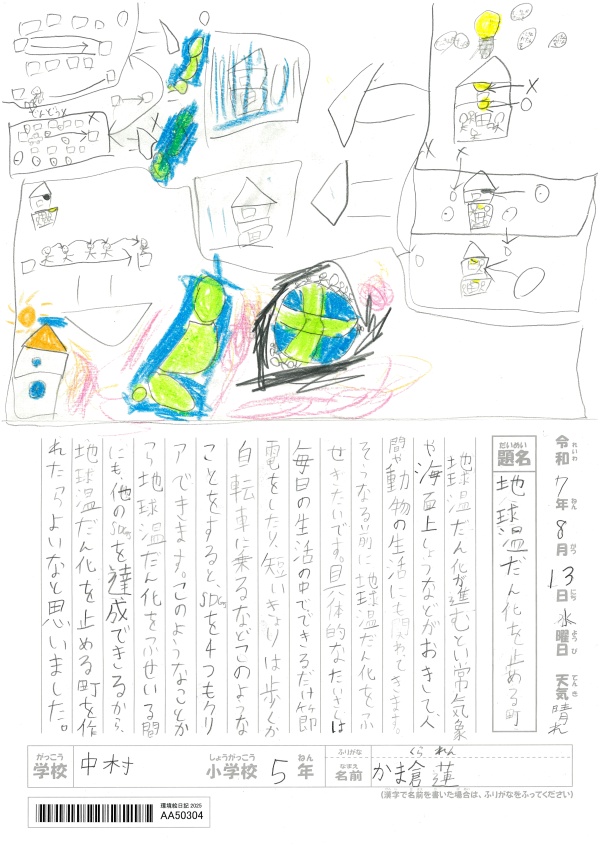 令和7年8月13日水曜日 天気 晴れ
れいわ ねん がつ にち ようび てんき
だいめい
題名 地球温だん化を止める町
地球温だん化が進むとい常気象
や海面上しょうなどがおきて、人
間や動物の生活にも関わってきます。
そうなる前に地球温だん化をふ
せぎたいです。具体的なたいさくは
毎日の生活の中でできるだけ節
電をしたり、短いきょりは歩くか
自転車に乗るなどこのような
ことをすると、SDGsを4つもクリ
アできます。このようなことか
ら地球温だん化をふせいる間
にも、他のSDGsを達成できるから、
地球温だん化を止める町を作
れたらよいなと思いました。
がっこう
学校 中村
しょうがっこう
小学校 5年
ねん
ふりがな くら れん
なまえ
名前 かま倉 蓮
(漢字で名前を書いた場合は、ふりがなをふってください)
環境絵日記 2025
AA50304